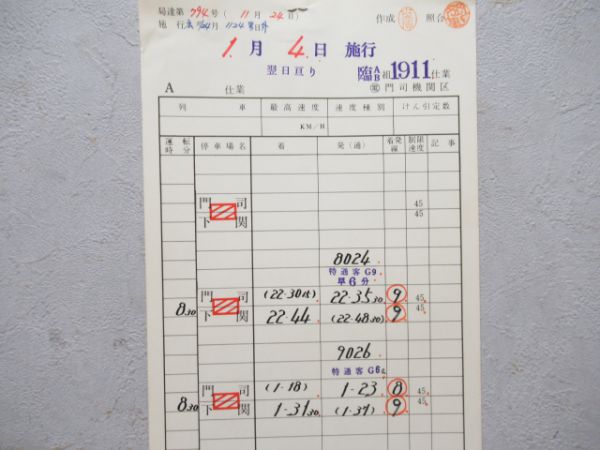 局達第794号(11月24日)
作成 照合
1月4日 施行
翌日亘り
臨AB組1911仕業
A 仕業
門司機関区
列 車 最高速度 速度種別 けん引定数
KM/H
運転時分 停車場名 着 発(通) 着発線 制限速度 記事
門司 45
下関 45
8024
特通客G9
早6分
8 30 門司 (22-30 15) 22-35 30 9 45
下関 22-44 (22-48 30) 9 45
9026
特通客G6
8 30 門司 (1-18) 1-23 8 45
下関 1-31 30 (1-37) 9 45